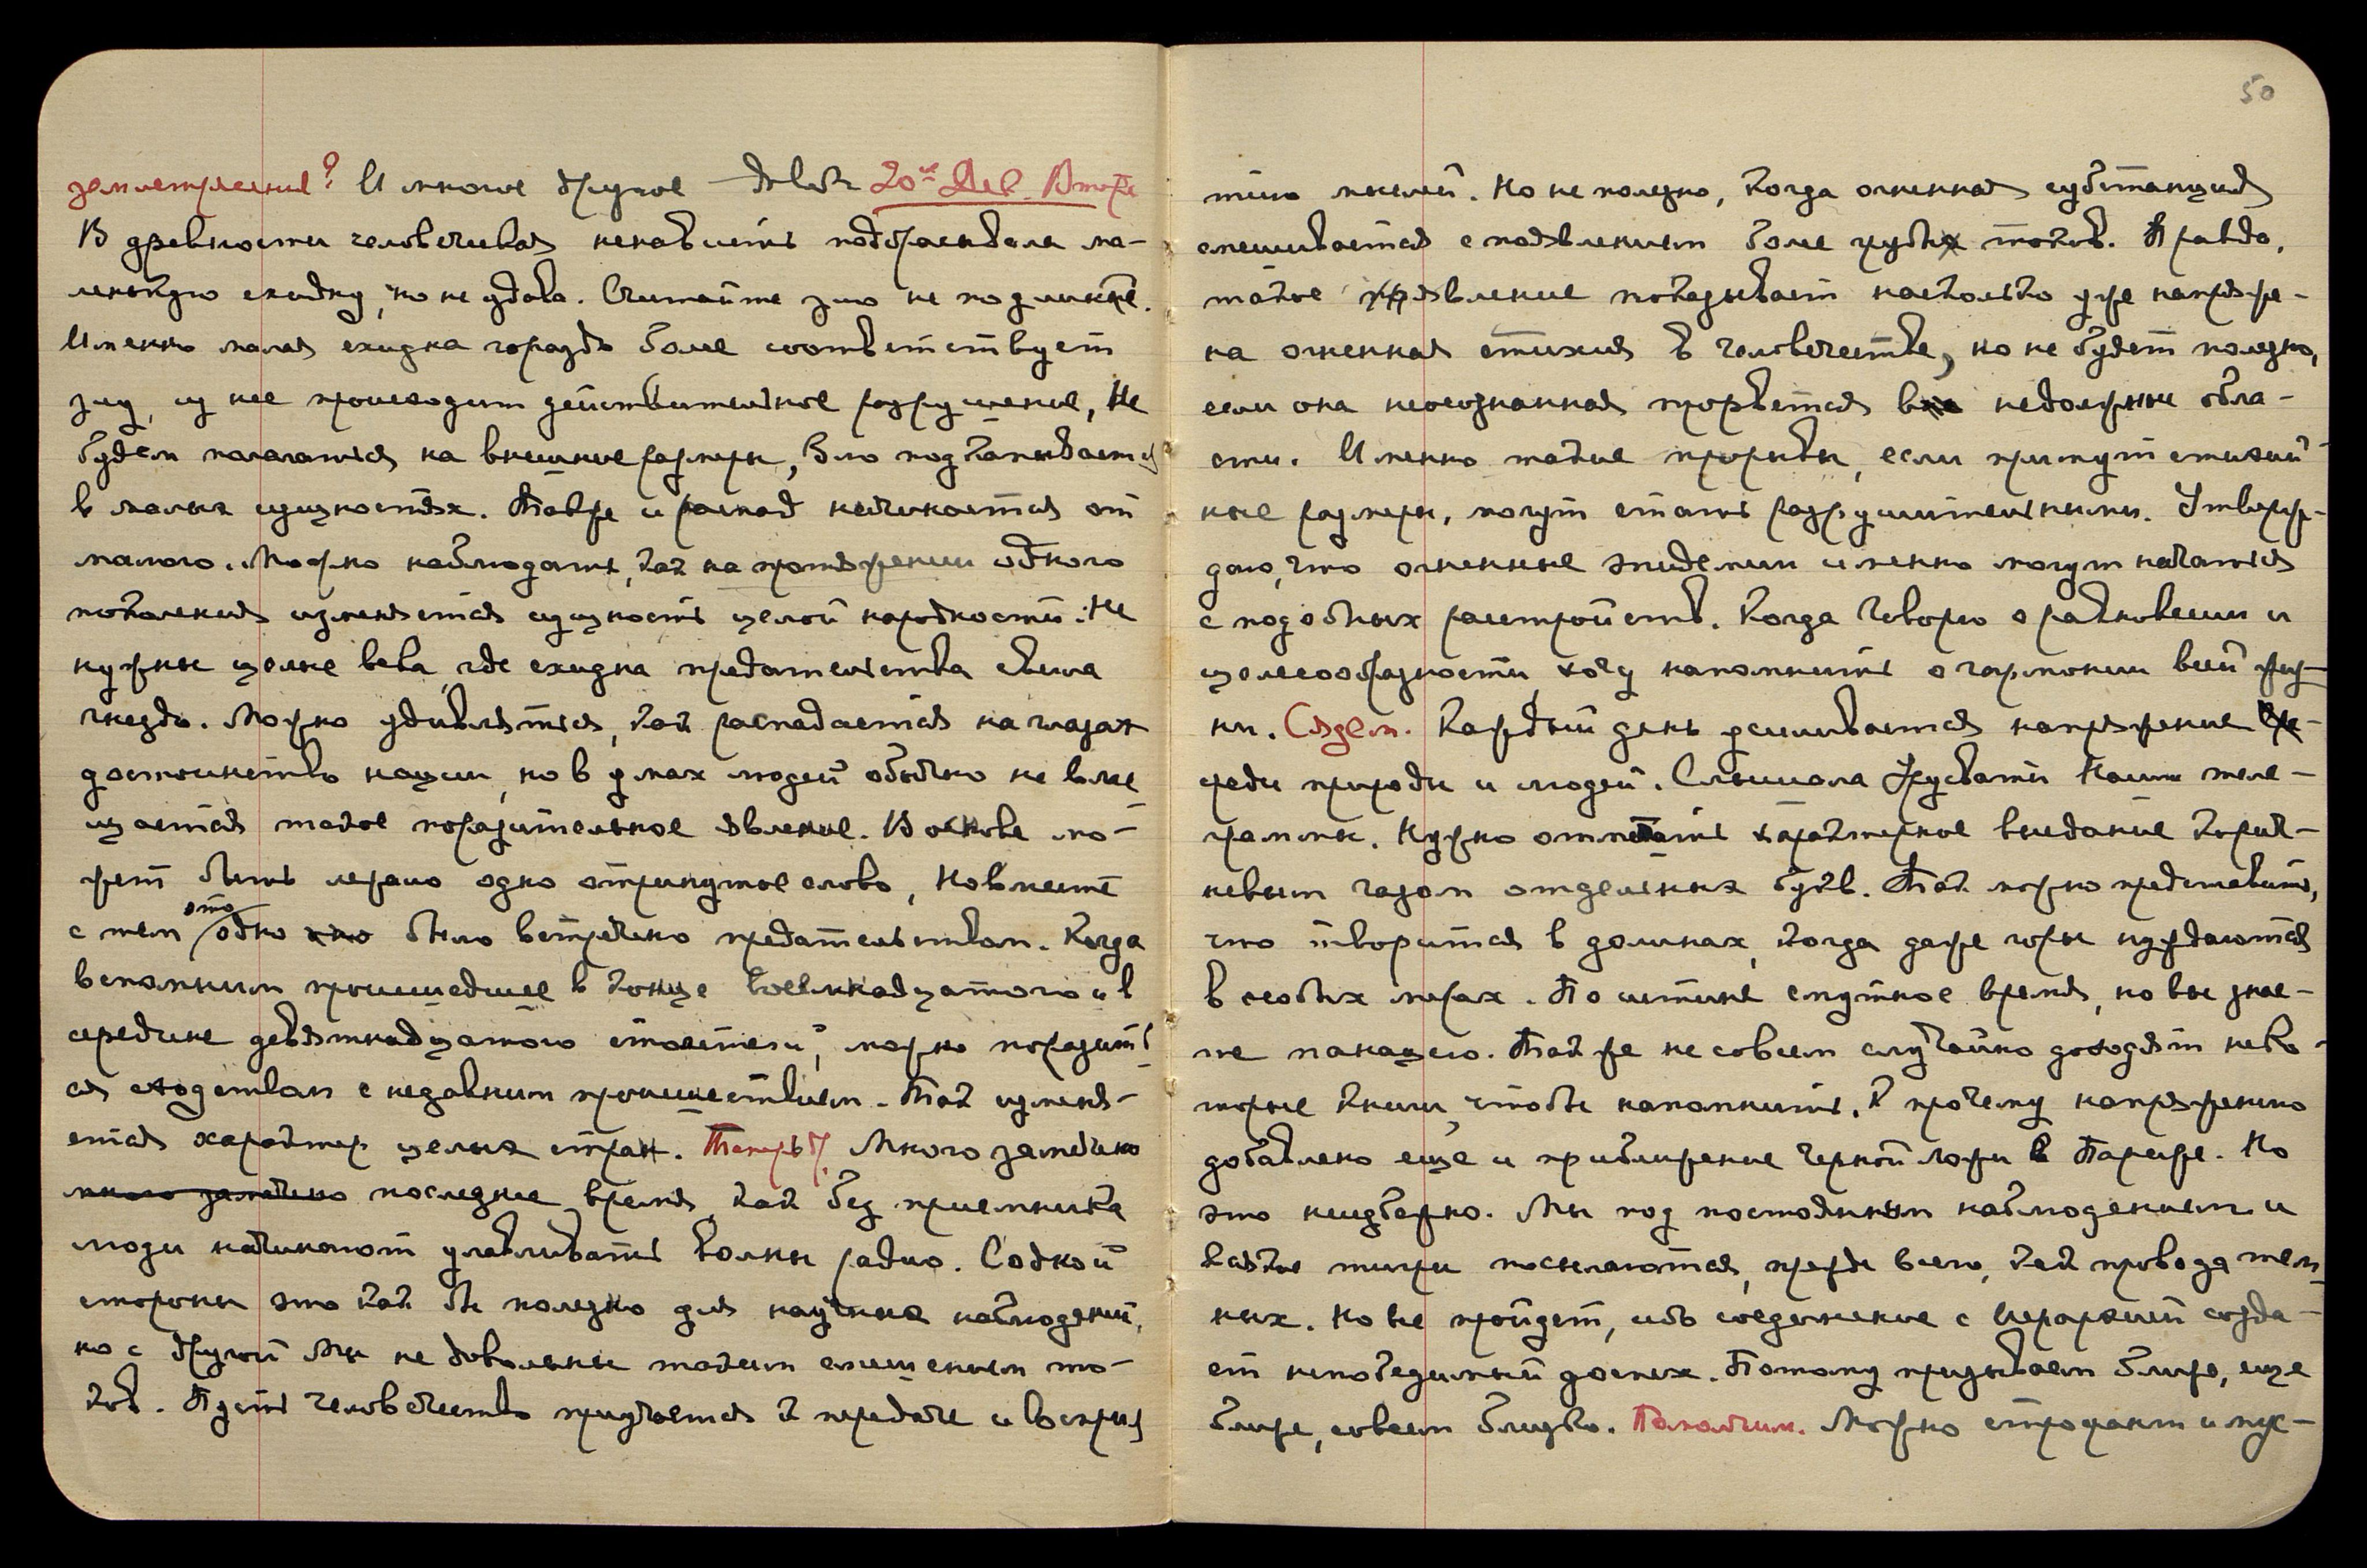 землетрясения? И многое другое — довольно 20ое Дек. Вторн.
В древности человеческая ненависть подбрасывала ма-
ленькую ехидну, но не удава. Считайте зло не по длинне.
Именно малая ехидна гораздо более соответствует
злу, из нее происходит действительное разрушение, Не
будем полагаться на внешние размеры, Зло подтачивается
в малых сущностях. Также и распад начинается от
малого. Можно наблюдать, как на протяжении одного
поколения изменяется сущность целой народности. Не
нужны целые века, где ехидна предательства свила
гнездо. Можно удивляться, как распадается на глазах
достоинство нации, но в умах людей обычно не вме
щается такое поразительное явление. В основе мо-
жет быть лежало одно отринутое слово, Но вместе
с тем это одно было встречено предательством. Когда
вспомним прошедшее в конце восемнадцатого и в
середине девятнадцатого столетий, можно поразить
ся сходством с недавним прошествием. Так изменя-
ется характер целых стран. Теперь Много замечено
много замечено последнее время, как без приемника
люди начинают улавливать волны радио. С одной
стороны это как бы полезно для научных наблюдений,
но с другой Мы не довольны таким смешением то-
ков. Пусть человечество приучается к передаче и восприя
50
тию мыслей. Но не полезно, когда огненная субстанция
смешивается с появлением более грубых токов. Правда,
такое проявление показывает насколько уже напряже-
на огненная стихия в человечестве, но не будет полезно,
если она неосознанная прорвется в недолжные обла-
сти. Именно такие прорывы, если примут стихий-
ные размеры, могут стать разрушительными. Утверж-
даю, что огненные эпидемии именно могут начаться
с подобных расстройств. Когда Говорю о равновесии и
целесообразности, хочу напомнить о гармонии всей жиз-
ни. Сядем. Каждый день усиливается напряжение
среди природы и людей. Слышала Урусвати Наши теле-
граммы. Нужно отметить характерное выедание корич-
невым газом отдельных букв. Так можно представить,
что творится в долинах, когда даже горы нуждаются
в особых мерах. По истине смутное время, но вы знае-
те панацею. Также не совсем случайно доходят неко-
торые книги, чтобы напомнить. К прочему напряженно
добавлено еще и приближение Черной ложи в Париже. Но
это неизбежно. Мы под постоянным наблюдением и
всякие тигры посылаются, прежде всего, как провода тем
ных. Но все пройдет, ибо соединение с Иерархией созда-
ет непобедимый доспех. Потому призываем ближе, еще
ближе, совсем близко. Помолчим. Можно